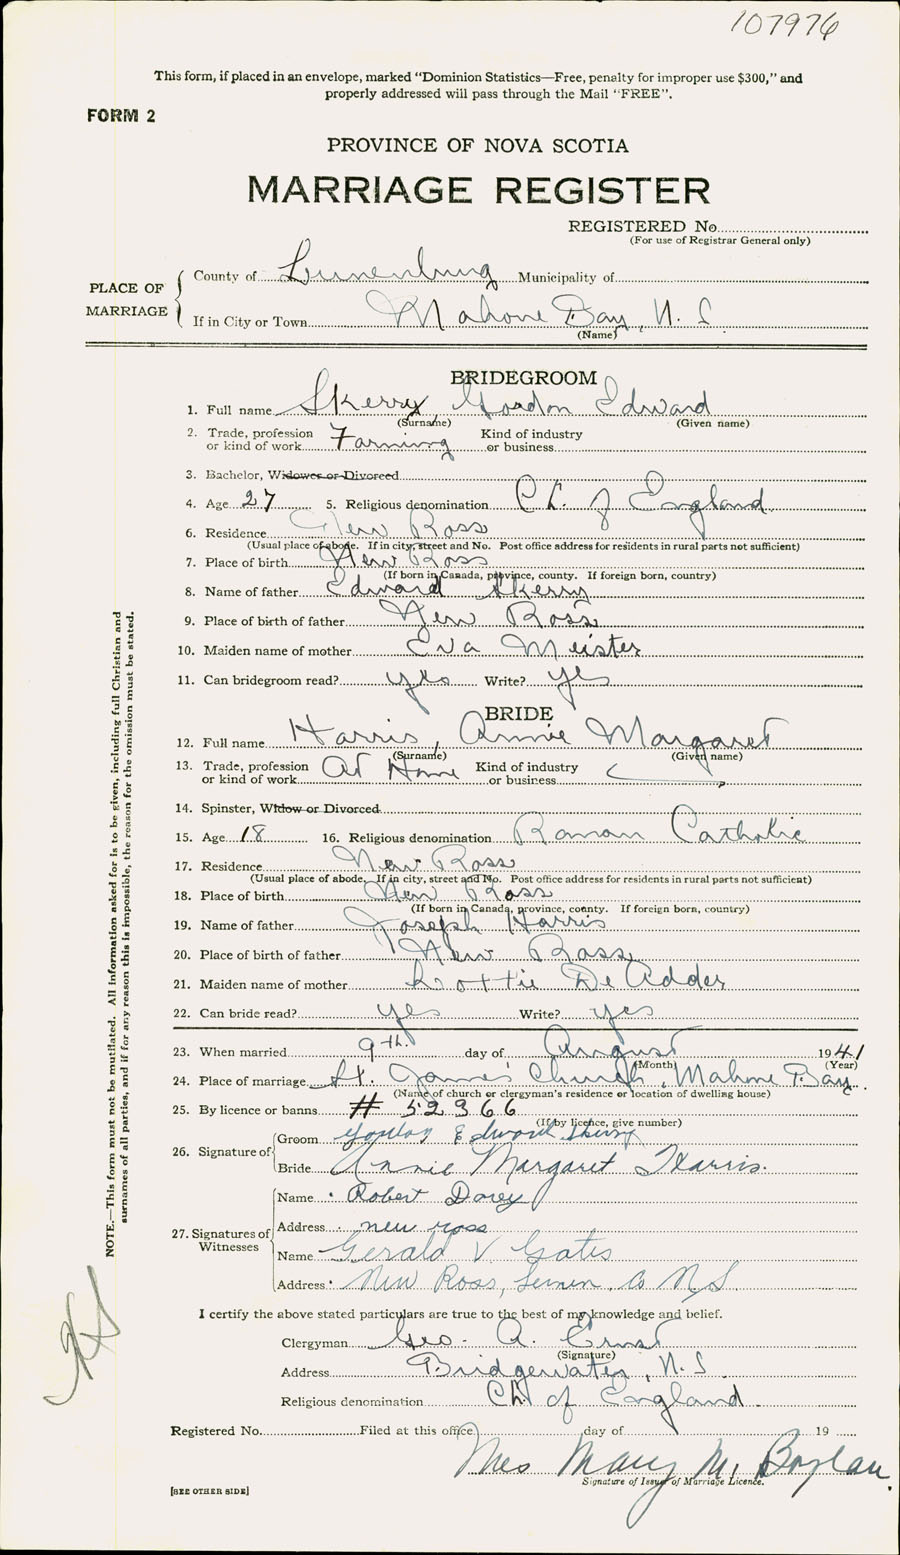 107976
This form, if placed in an envelope, marked "Dominion Statistics—Free, penalty for improper use $300," and
properly addressed will pass through the Mail "FREE".
FORM 2
PROVINCE OF NOVA SCOTIA
MARRIAGE REGISTER
REGISTERED No.
(For use of Registrar General only)
PLACE OF MARRIAGE
County of Lunenburg Municipality of
If in City or Town Mahone Bay, N. S
(Name)
BRIDEGROOM
1. Full name Skerry, Gordon Edward
(Surname) (Given name)
2. Trade, profession or kind of work Farming Kind of industry or business
3. Bachelor, Widower or Divorced
4. Age 27 5. Religious denomination Ch. of England
6. Residence New Ross
(Usual place of abode. If in city, street and No. Post office address for residents in rural parts not sufficient)
7. Place of birth New Ross
(If born in Canada, province, county. If foreign born, country)
8. Name of father Edward Skerry
9. Place of birth of father New Ross
10. Maiden name of mother Eva Meister
11. Can bridegroom read? yes Write? yes
BRIDE
12. Full name Harris, Annie Margaret
(Surname) (Given name)
13. Trade, profession or kind of work At Home Kind of industry or business
14. Spinster, Widow or Divorced
15. Age 18 16. Religious denomination Roman Catholic
17. Residence New Ross
(Usual place of abode. If in city, street and No. Post office address for residents in rural parts not sufficient)
18. Place of birth New Ross
(If born in Canada, province, county. If foreign born, country)
19. Name of father Joseph Harris
20. Place of birth of father New Ross
21. Maiden name of mother Lottie De Adder
22. Can bride read? yes Write? yes
23. When married 9th. day of August 1941
(Month) (Year)
24. Place of marriage St. James' Church, Mahone Bay.
(Name of church or clergyman's residence or location of dwelling house)
25. By licence or banns # 52366
(If by licence, give number)
26. Signature of
Groom Gordon Edward Skerry
Bride Annie Margaret Harris.
27. Signatures of Witnesses
Name Robert Dorey
Address new ross
Name Gerald V. Gates
Address New Ross, Lunen. Co N.S
I certify the above stated particulars are true to the best of my knowledge and belief.
Clergyman Geo. A. Ernst
(Signature)
Address Bridgewater, N. S
Religious denomination Ch. of England
Registered No. Filed at this office day of 19
Mrs Mary M. Boylan.
Signature of Issuer of Marriage Licence.
[SEE OTHER SIDE]
NOTE.—This form must not be mutilated. All information asked for is to be given, including full Christian and
surnames of all parties, and if for any reason this is impossible, the reason for the omission must be stated.